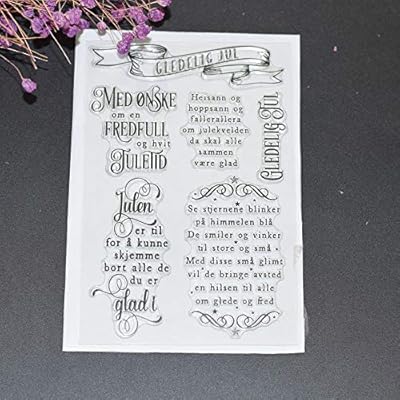 GLEDELIG JUL
MED ØNSKE
om en
FREDFULL
og hvit
JULETID
Heisann og
hoppsann og
fallerallera
om julekvelden
da skal alle
sammen
være glad
GLEDELIG JUL
Julen
er til
for å kunne
skjemme
bort alle de
du er
glad i
Se stjernene blinker
på himmelen blå
De smiler og vinker
til store og små
Med disse små glimt
vil de bringe avsted
en hilsen til alle
om glede og fred